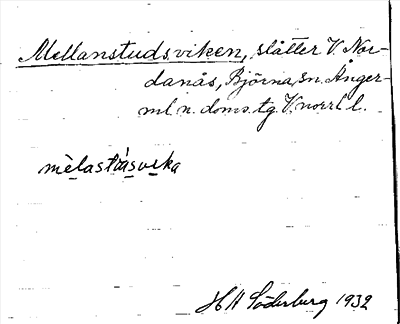 Mellanstudsviken, slåtter V. Nor-
danås, Björna sn. Ånger-
ml. n. doms. tg. V.norrl. l.
H A Söderberg 1932